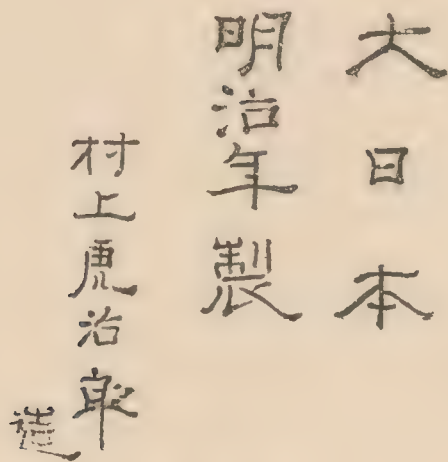 大日本
明治年製
村上虎治郎
造